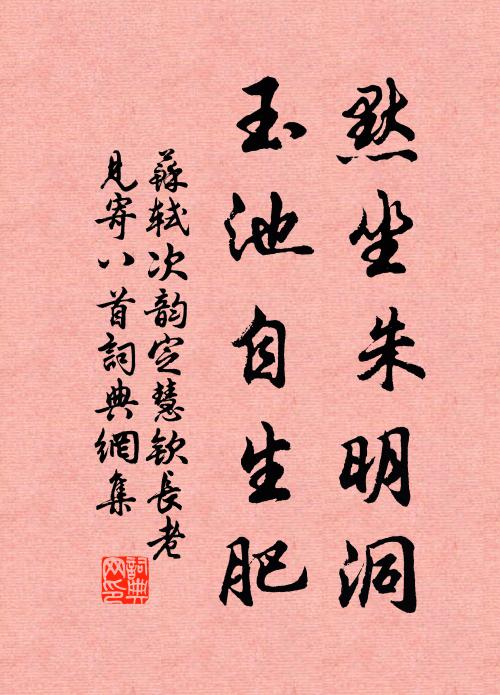 默坐朱明洞
玉池自生肥
蘇軾次韵定慧欽長老
見寄八首詞典網集
詞典
网印